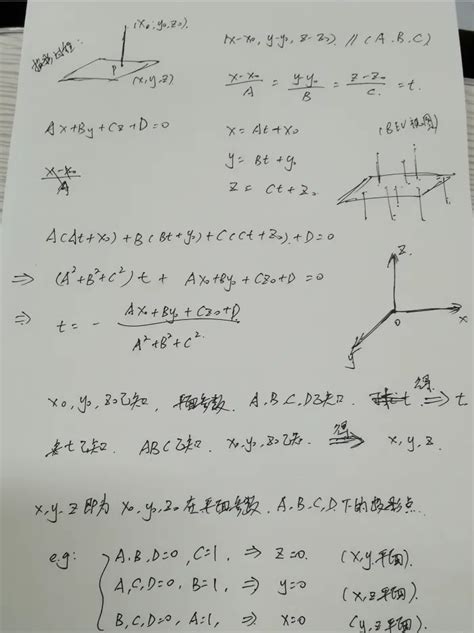 投影过程:
(x₀, y₀, z₀)
P
(x, y, z)
(x-x₀, y-y₀, z-z₀) // (A, B, C)
x-x₀/A = y-y₀/B = z-z₀/C = t.
Ax+By+Cz+D=0
x = At+x₀
y = Bt+y₀
z = Ct+z₀
(BEV视图)
A(At+x₀) + B(Bt+y₀) + C(Ct+z₀) + D=0
⇒ (A²+B²+C²)t + Ax₀+By₀+Cz₀+D=0
⇒ t = - Ax₀+By₀+Cz₀+D/A²+B²+C²
z
x
y
o
x₀, y₀, z₀已知, 平面参数, A, B, C, D已知, 得⇒ t
t已知, ABC已知, x₀, y₀, z₀已知, 得⇒ x, y, z.
x, y, z即为 x₀, y₀, z₀ 在平面参数 A, B, C, D下的投影点.
e.g: A, B, D=0, C=1, ⇒ z=0. (x, y平面)
A, C, D=0, B=1, ⇒ y=0 (x, z平面).
B, C, D=0, A=1, ⇒ x=0 (y, z平面).